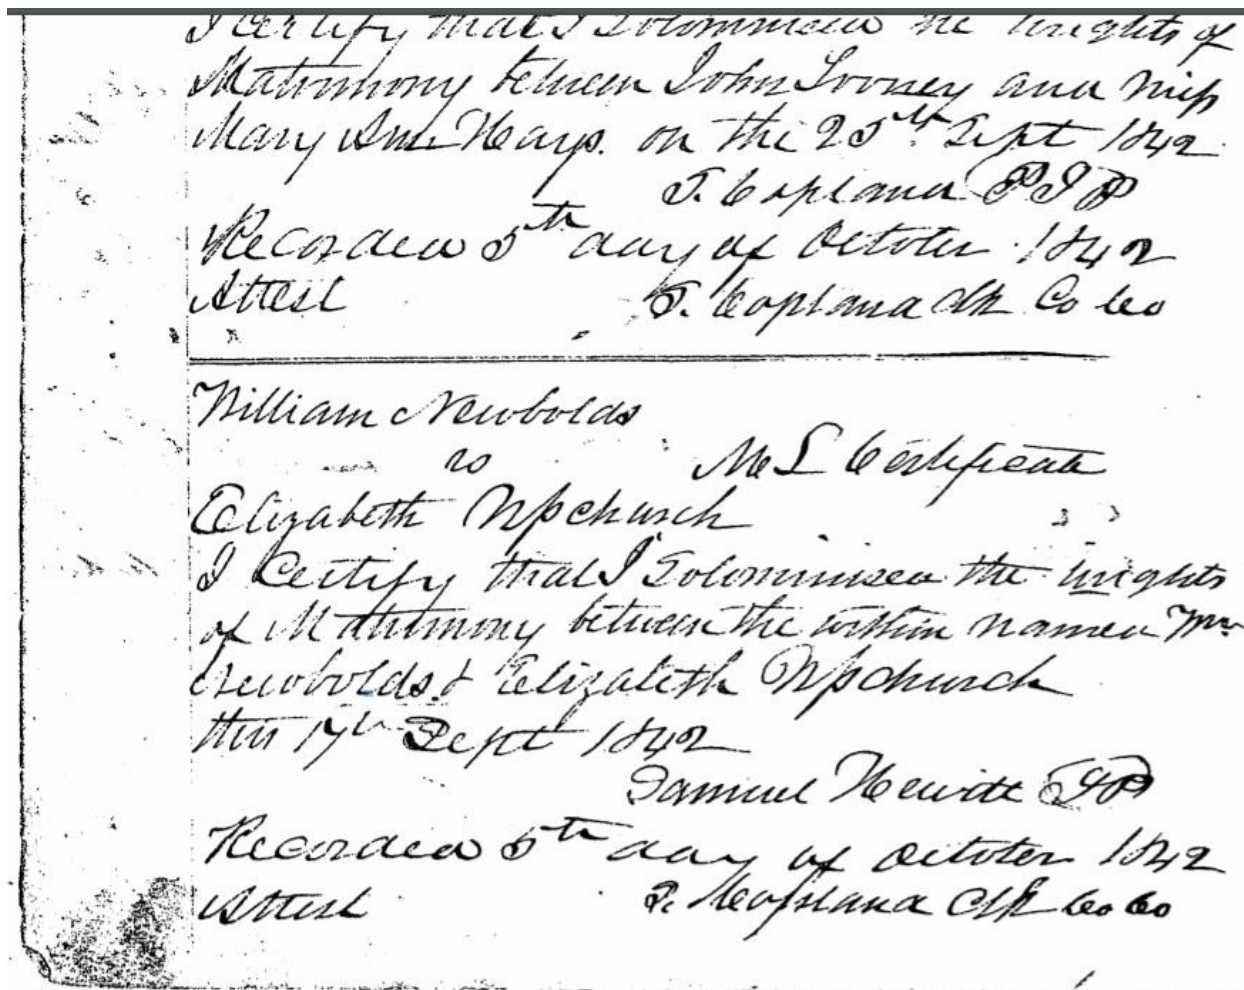 I certify that I Solomnised the wrights of
Matrimony between John Looney and miss
Mary Ann Hays. on the 25th Sept 1842
T. Copland PJP
Recorded 5th day of October 1842
Attest T. Copland Clk Co Co
William Newbolds
to M L Certificate
Elizabeth Upchurch
I Certify that I Solomnised the wrights
of Matrimony between the within named Wm
Newbolds & Elizabeth Upchurch
this 17th Sept 1842
Samuel Hewitt JP
Recorded 5th day of October 1842
Attest T. Copland Clk Co Co